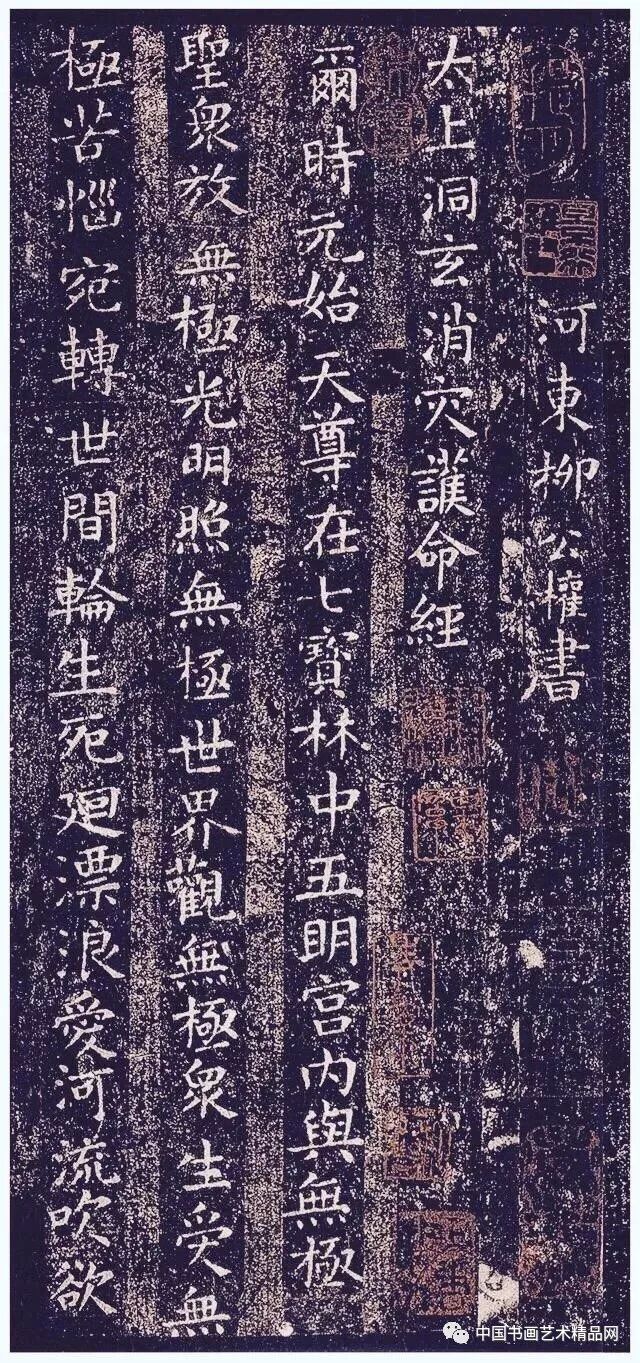 河東柳公權書
太上洞玄消灾護命經
爾時元始天尊在七寶林中五明宮内與無極
聖衆放無極光明照無極世界觀無極衆生受無
極苦惱宛轉世間輪生死廻漂浪愛河流吹欲
中国书画艺术精品网